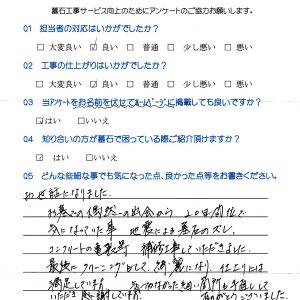 墓石工事サービス向上のためにアンケートのご協力お願いします。
Q1 担当者の対応はいかがでしたか?
□大変良い ☑良い □普通 □少し悪い □悪い
Q2 工事の仕上がりはいかがでしたか?
□大変良い ☑良い □普通 □少し悪い □悪い
Q3 当アンケートをお名前を伏せてホームページに掲載しても良いですか?
☑はい □いいえ
Q4 知り合いの方が墓石で困っている際ご紹介頂けますか?
☑はい □いいえ
Q5 どんな些細な事でも気になった点、良かった点等をお書きください。
お世話になりました。
お墓での偶然の出会から 20日間位で
気になっていた事 地震による墓石のズレ、
コンクリートの亀裂等 補修工事していただきました。
最後に クリーニングもして、綺麗になり 仕上りには
満足しています。 気づかなかった細い箇所も手直しして
いただき 感謝しています。 ありがとうございました